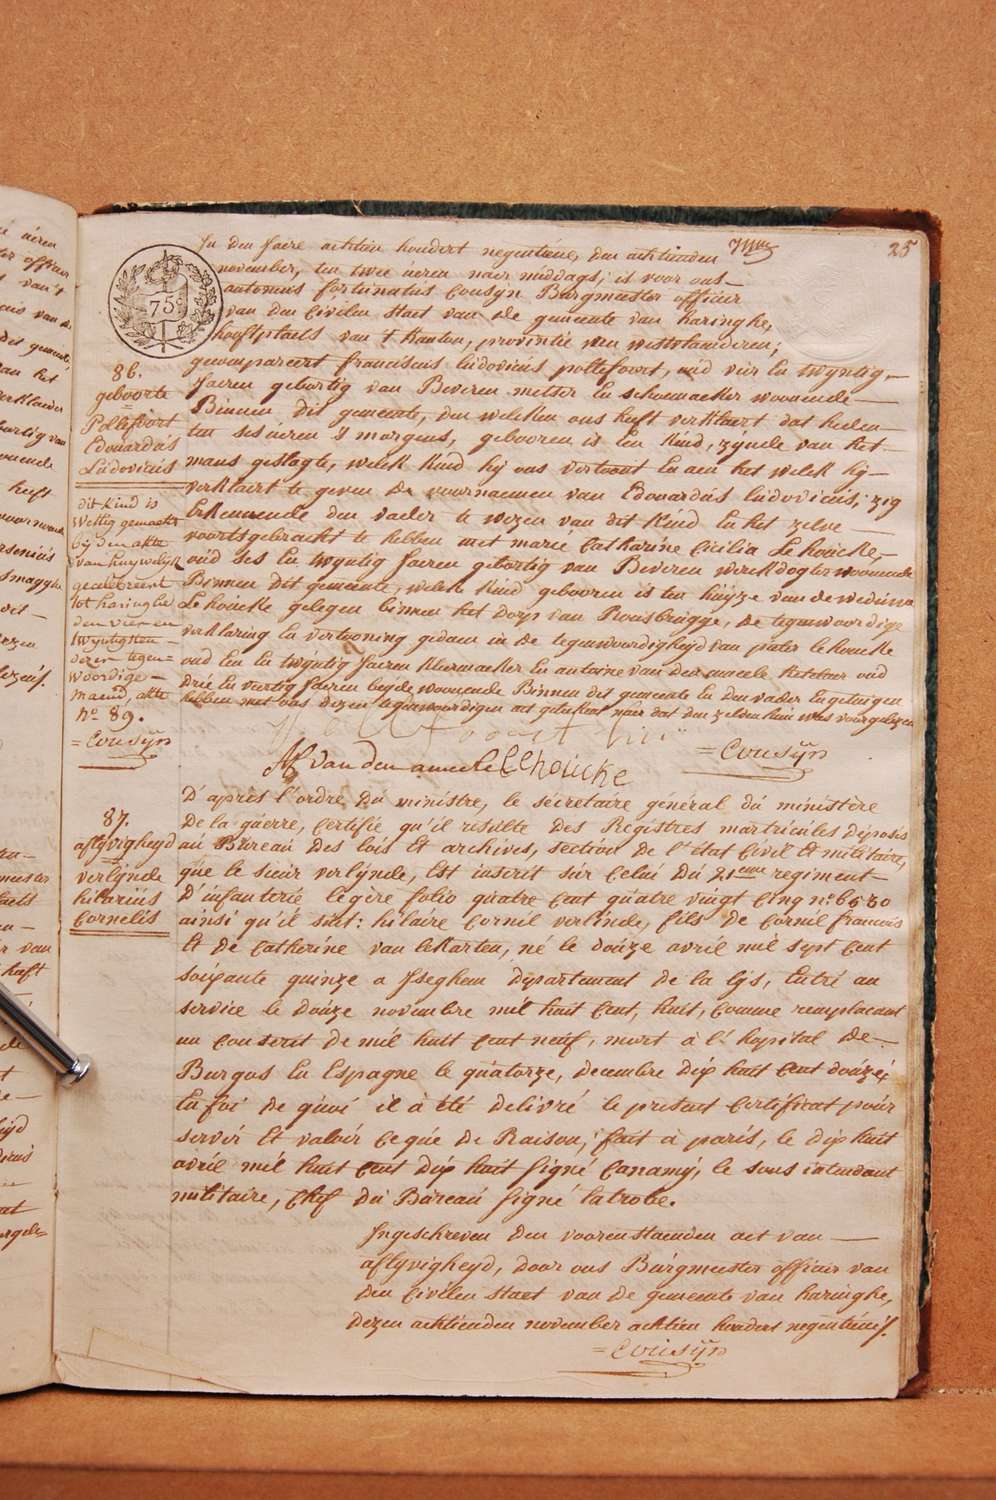 25
75 c
In den Jaere achtien hondert negentiene, den achtienden
november, ten twee uren naer middags, is voor ons
antonius fortunatus Cousÿn Burgmeester officier
van den Civilen Staet van de gemeente van haringhe,
hooftplaets van 't Kanton, provintie van westvlaenderen;
gecompareert franciscus ludovicus pollefoort, oud vier en twÿntig
Jaeren gebortig van Beveren metser en schoenmaeker woonende
Binnen dit gemeente, den welken ons heeft verklaert dat heden
ten ses uren 's morgens, gebooren is een kind, zynde van het
mans geslagte, welk kind hÿ ons vertoont en aen het welk hÿ
verklaert te geven de voornaemen van Edouardus ludovicus; zig
Erkennende den vader te wezen van dit kind en het zelve
voortsgebracht te hebben met marie Catharine Cicilia Lehoucke,
oud ses en twÿntig Jaeren gebortig van Beveren werckdogter woonende
Binnen dit gemeente, welk kind gebooren is ten huÿze van de weduwe
Lehoucke gelegen binnen het dorp van Rousbrugge, de tegenwoordige
verklaring en vertooning gedaen in de tegenwoordigheyd van pieter lehoucke
oud een en twÿntig Jaeren kleermaeker en antoine van den ameele ketelaer oud
drie en veertig Jaeren beÿde woonende Binnen dit gemeente en den vader en getuigen
hebben met ons dezen tegenwoordigen act geteekent naer dat den zelven hun was voorgelezen
van den ameele
Lehoucke
= Cousÿn
86.
geboorte
Pollefoort
Edouardus
Ludovicus
dit kind is
Wettig gemaekt
bÿ den akte
van huÿwelÿk
gecelebreert
tot haringhe
den vier en
twÿntigsten
dezer tegen=
woordige
maend, akte
nº 89.
= Cousÿn
D'après l'ordre du ministre, le sécretaire général du ministère
de la guerre, certifie, qu'il résulte des Registres matricules déposés
au Bureau des lois et archives, section de l'état Civil et militaire,
que le sieur verlÿnde, Est inscrit sur celui du 21eme regiment
D'infanterie légère folio quatre cent quatre vingt cinq nº 6580
ainsi qu'il suit: hilaire Cornil verlinde, fils de Cornil francois
Et de Catherine van lekarten, né le douze avril mil sept cent
soixante quinze a Iseghem département de la Lÿs, Entré au
service le douze novembre mil huit cent, huit, comme remplacant
un conscrit de mil huit cent neuf, mort à l'hopital de
Burgos En Espagne le quatorze, decembre dix huit cent douze,
En foi de quoi il à été delivré le present certificat pour
servir Et valoir ce que de Raison, fait à paris, le dix huit
avril mil huit cent dix huit signé Canamÿ, le sous intendant
militaire, chef du Bureau signé latrobe.
87.
aflyvigheyd
verlÿnde
hilarius
Cornelis
Ingeschreven den voorenstaenden act van
aflyvigheyd, door ons Burgmeester officier van
den Civilen Staet van de gemeente van haringhe,
dezen achtienden november achtien hondert negentiene.
= Cousÿn